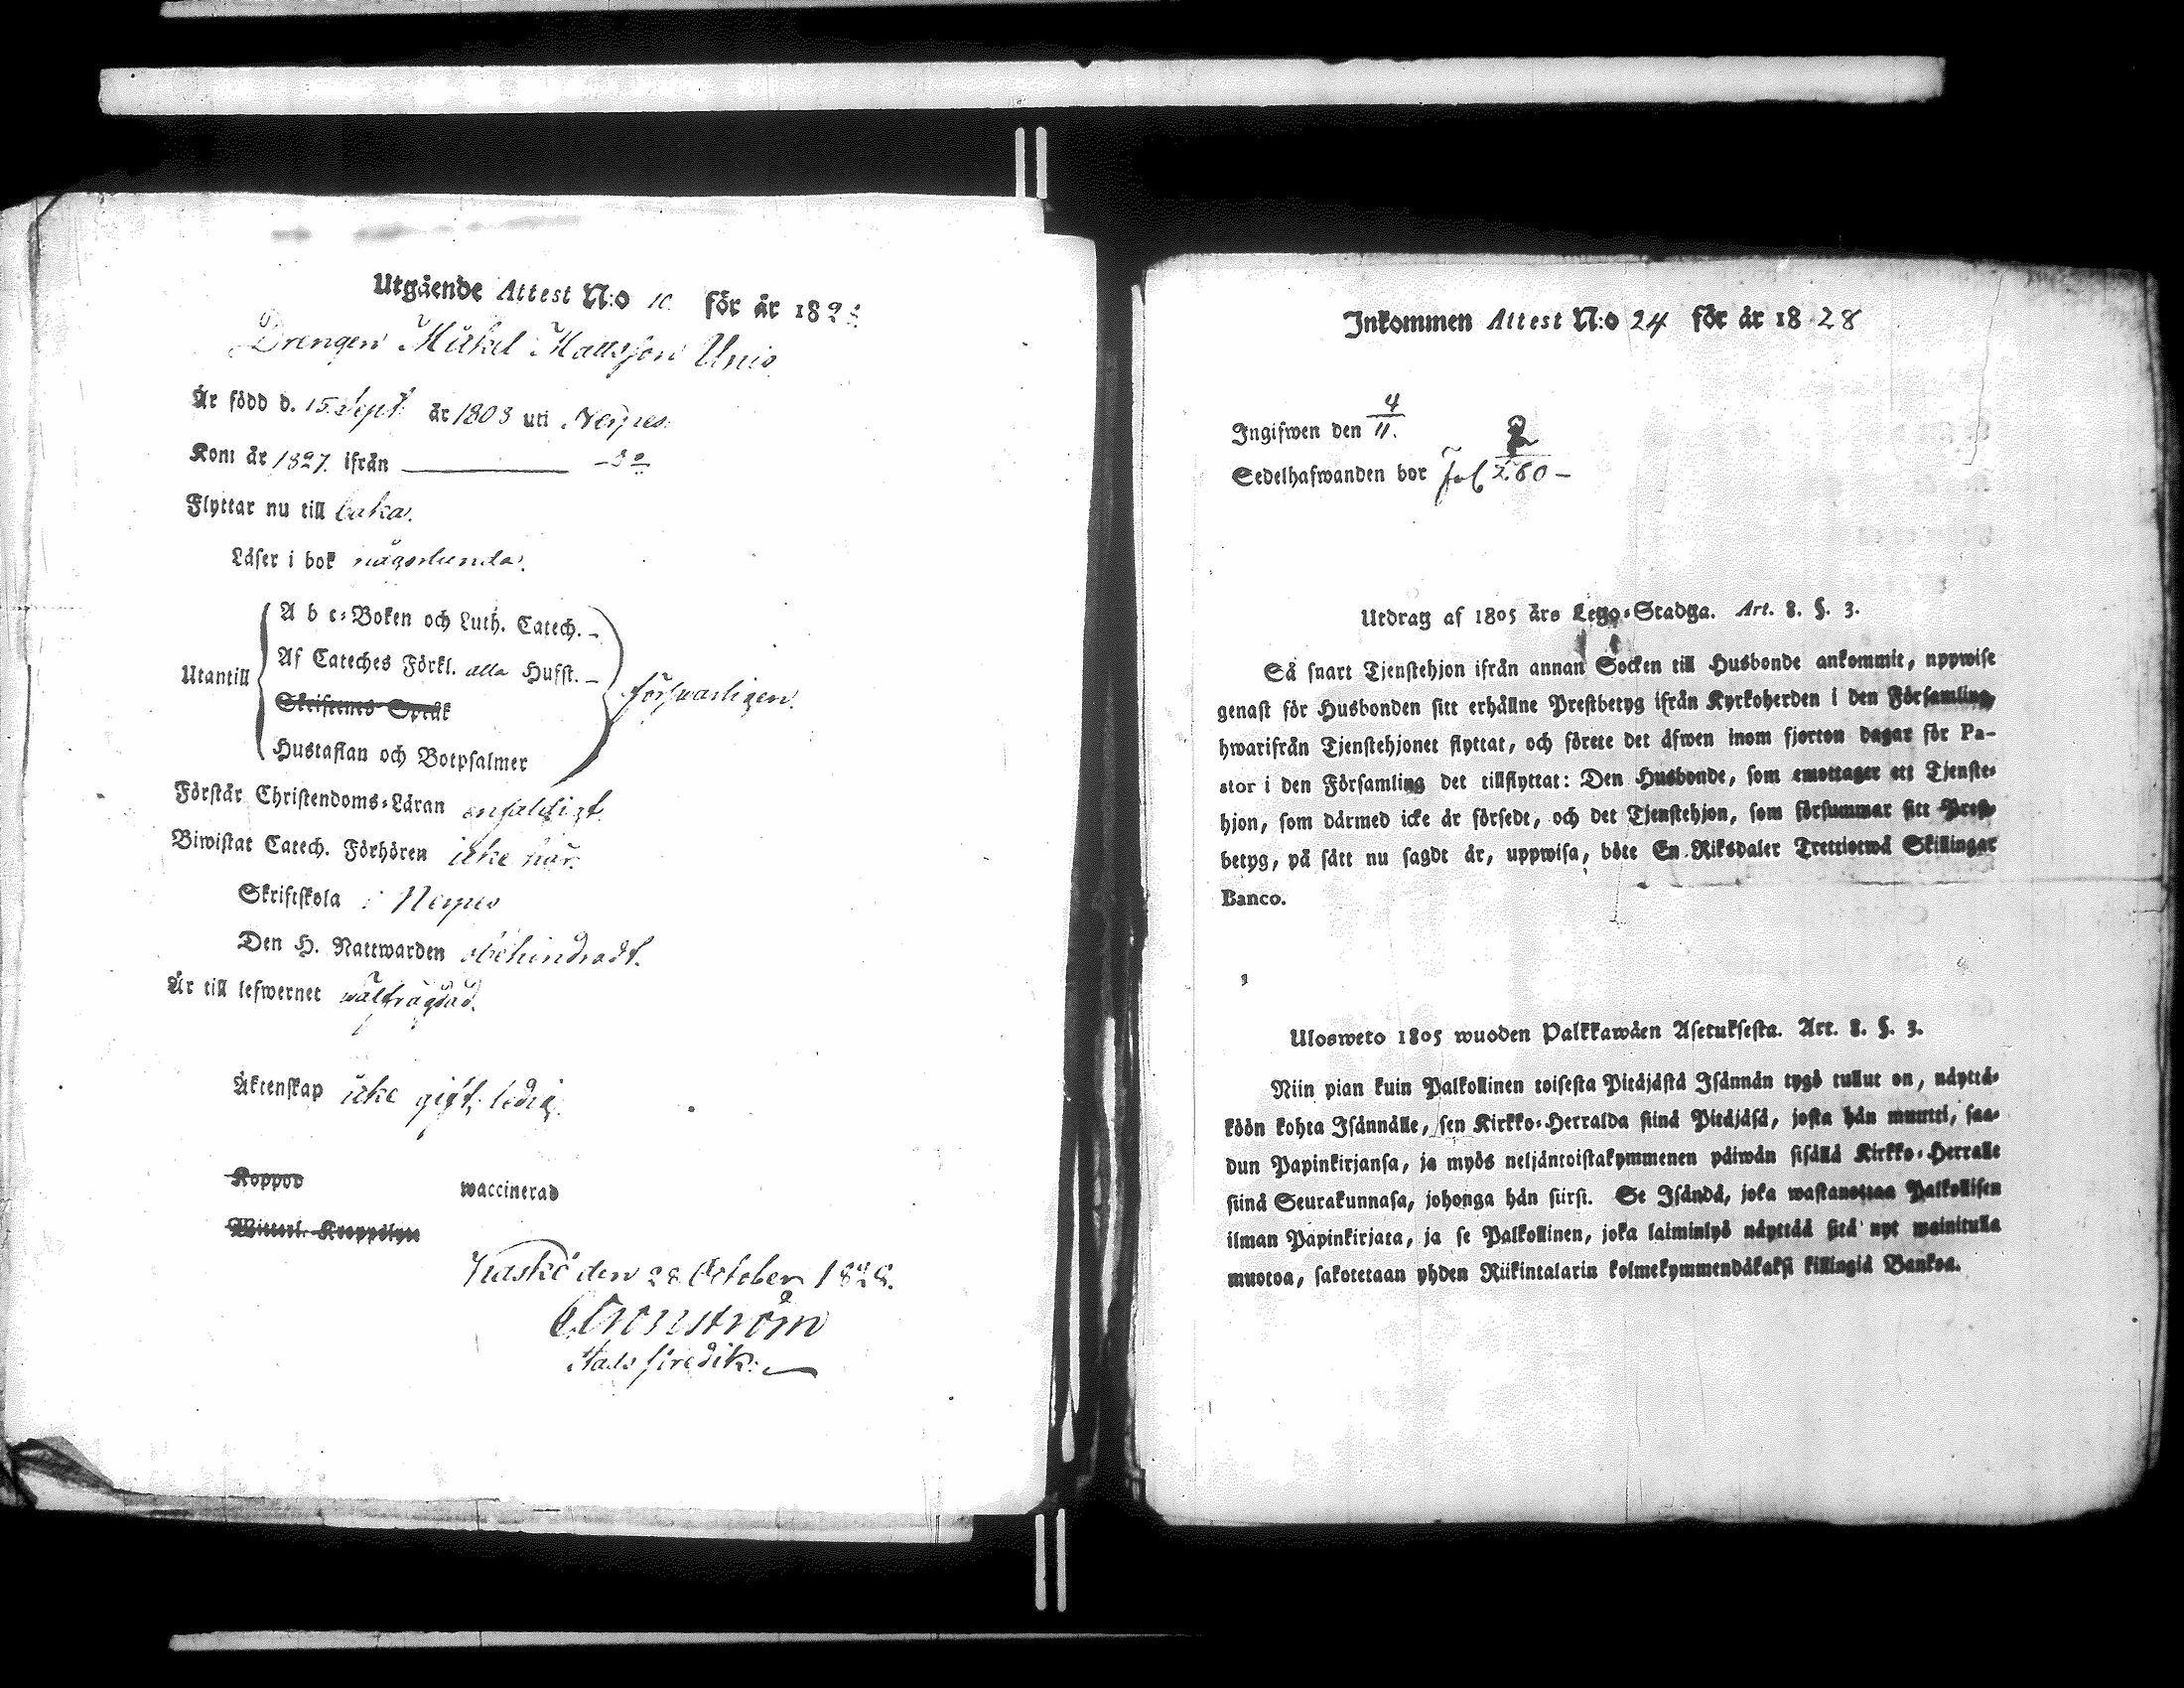 Utgående Attest N:o 10. för år 1828.
Drengen Mickel Mattsson Unis
Är född d. 15. Sept. år 1803 uti Nerpes.
Kom år 1827. ifrån — d:o
Flyttar nu till baka.
Läser i bok någorlunda.
A b c-Boken och Luth. Catech. –
Af Cateches Förkl. alla Hufst. –
Utantill
försvarligen.
Skriftenes Språk
Hustaflan och Botpsalmer
Förstår Christendoms-Läran enfaldigt.
Biwistat Catech. Förhören icke här.
Skriftskola i Nerpes
Den H. Nattwarden obehindradt.
Är till lefwernet wälfrägdad.
Äktenskap icke gift, ledig.
Koppor waccinerad
Witterl. Kroppslyte
Kaskö den 28 October 1828.
Cronström
Inkommen Attest N:o 24 för år 18 28
Ingifwen den 4/11.
Sedelhafwanden bor Fol 260 –
Utdrag af 1805 års Lego-Stadga. Art. 8. §. 3.
Så snart Tjenstehjon ifrån annan Socken till Husbonde ankommit, uppwise
genast för Husbonden sitt erhållne Prestbetyg ifrån Kyrkoherden i den Församling
hwarifrån Tjenstehjonet flyttat, och förete det äfwen inom fjorton dagar för Pa-
stor i den Församling det tillflyttat: Den Husbonde, som emottager ett Tjenste-
hjon, som därmed icke är försedt, och det Tjenstehjon, som försummar sitt Prest-
betyg, på sätt nu sagdt är, uppwisa, böte En Riksdaler Trettiotwå Skillingar
Banco.
Ulosweto 1805 wuoden Palkkawäen Asetuksesta. Art. 8. §. 3.
Niin pian kuin Palkollinen toisesta Pitäjästä Isännän tygö tullut on, näyttä-
köön kohta Isännälle, sen Kirkko-Herralda siinä Pitäjäsä, josta hän muutti, saa-
dun Papinkirjansa, ja myös neljäntoistakymmenen päiwän sisällä Kirkko-Herralle
siinä Seurakunnasa, johonga hän siirsi. Se Isändä, joka wastanottaa Palkollisen
ilman Papinkirjata, ja se Palkollinen, joka laiminlyö näyttää sitä nyt mainitulla
muotoa, sakotetaan yhden Riikintalarin kolmekymmendäkaksi killingiä Bankoa.